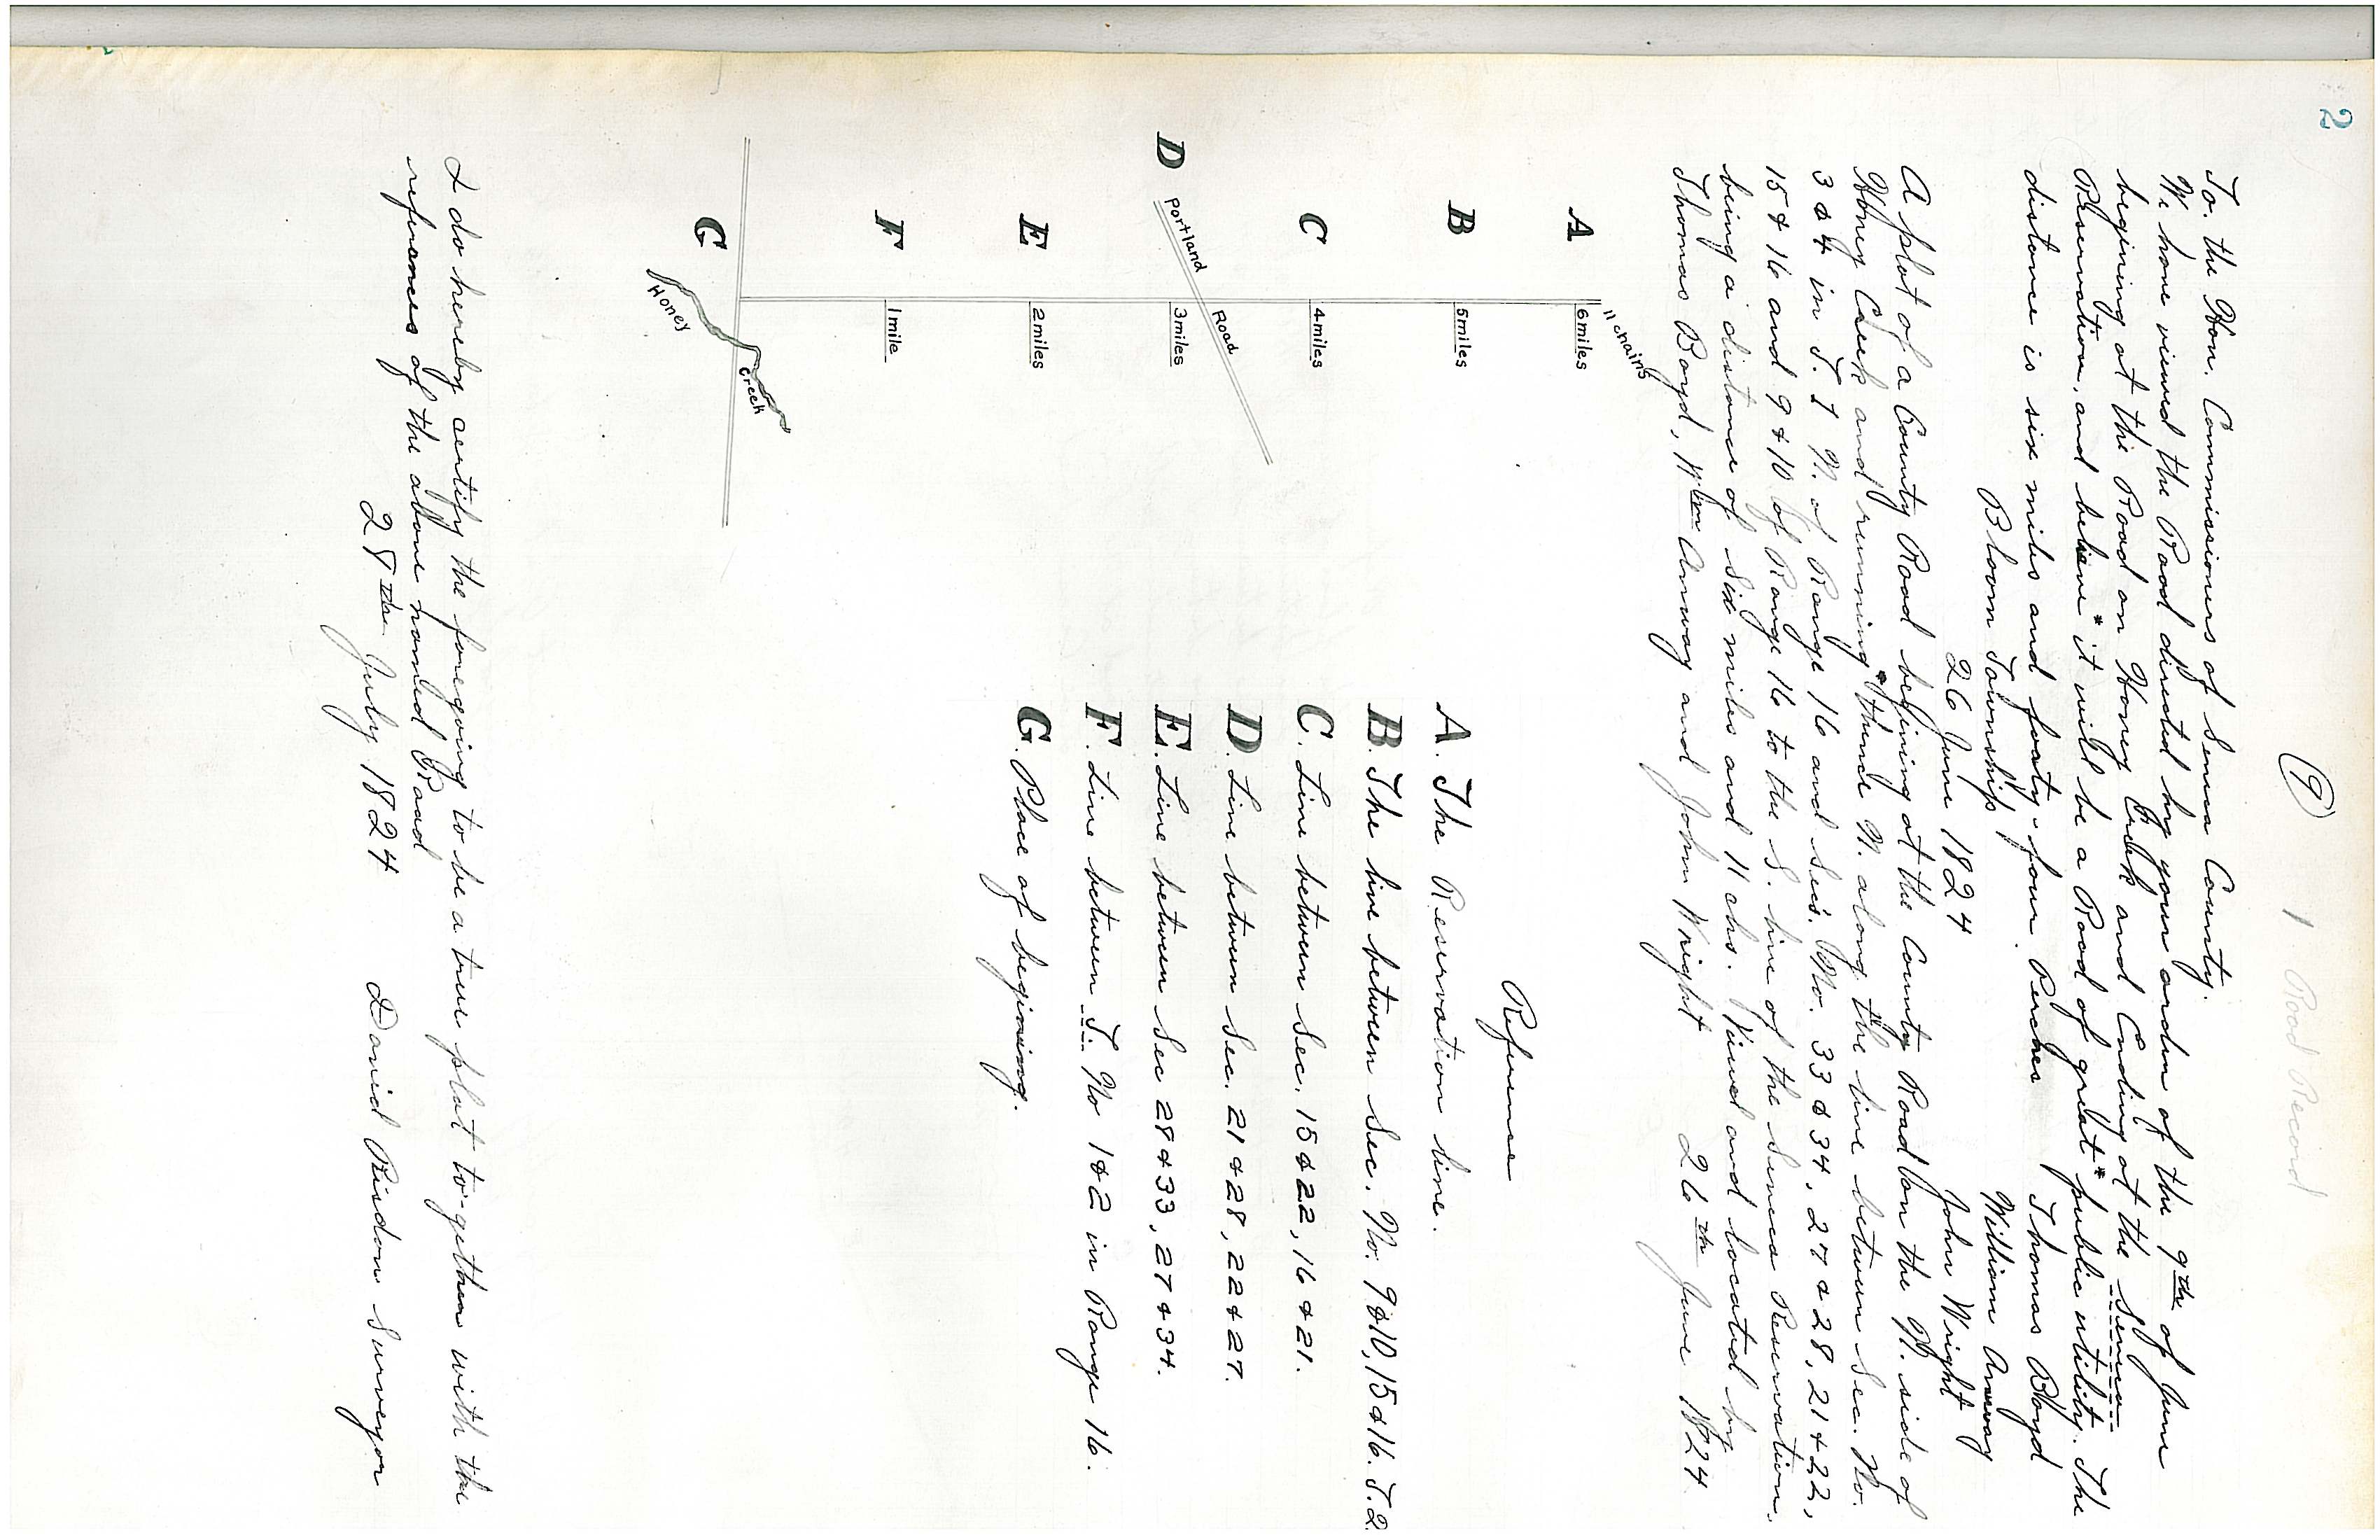 2
(9)
1 Road Record
To. the Hon. Commissioners of Seneca County.
We have viewed the Road directed by your order of the 9th of June
begining at the Road on Honey Creek and Ending at the Seneca
Reservation, and believe* it will be a Road of great* public utility. The
distance is six miles and forty-four Perches
Thomas Boyd
Bloom Township
William Anway
26 June 1824
John Wright
A plot of a County Road begining at the County Road on the N. side of
Honey Creek and running* thence N. along the line between Sec. No.
3 & 4 in T. 1 N. of Range 16 and Secs. No. 33 & 34, 27 & 28, 21 & 22,
15 & 16 and 9 & 10 of Range 16 to the S. line of the Seneca Reservation,
being a distance of six miles and 11 chs. Viewed and located by
Thomas Boyd, Wm Anway and John Wright 26th June 1824.
11 chains
A
6 miles
B
5 miles
C
4 miles
D
Portland Road
3 miles
E
2 miles
F
1 mile
G
Honey Creek
Reference
A. The Reservation line.
B. The line between Sec. No. 9 & 10, 15 & 16. T. 2
C. Line between Sec. 15 & 22, 16 & 21.
D. Line between Sec. 21 & 28, 22 & 27.
E. Line between Sec 28 & 33, 27 & 34.
F. Line between T. No 1 & 2 in Range 16.
G. Place of begining.
I do hereby certify the foregoing to be a true plat to-gether with the
referances of the above named Road
28th July 1824 David Risdon Surveyor